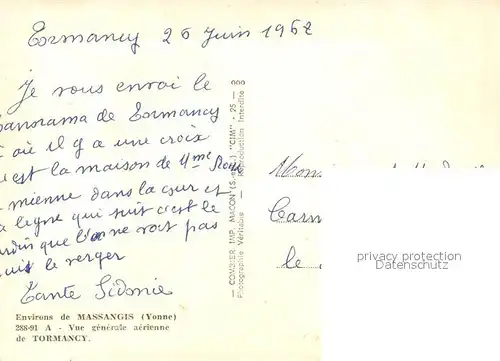 Tormancy 26 Juin 1962
Je vous envoi le
panorama de Tormancy
où il y a une croix
est la maison de Mme
mienne dans la cour et
la ligne qui suit c'est le
que l'on ne voit pas
puis le verger
Tante Sidonie
Environs de MASSANGIS (Yonne)
288-91 A - Vue générale aérienne
de TORMANCY.
— COMBIER IMP. MACON (S.-et-L.) "CIM" - 25 — 000
Photographie Véritable - Reproduction Interdite
le
privacy protection
Datenschutz